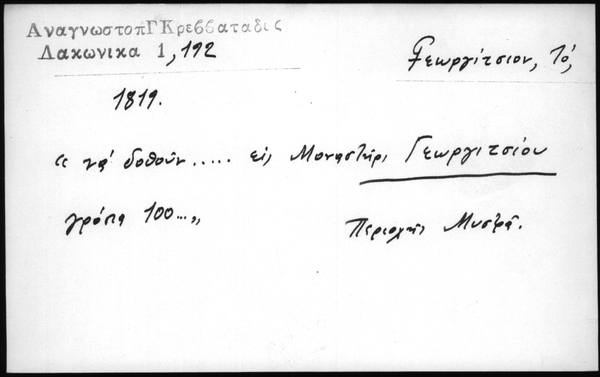 ΑναγνωστοπΓΚρεββαταδις
Λακωνικα 1,192
Γεωργίτσιον, Τό,
1819.
« νά δοθοῦν ..... εἰς Μοναστῆρι Γεωργιτσίου
γρόσια 100...»
Περιοχῆς Μυστρᾶ.